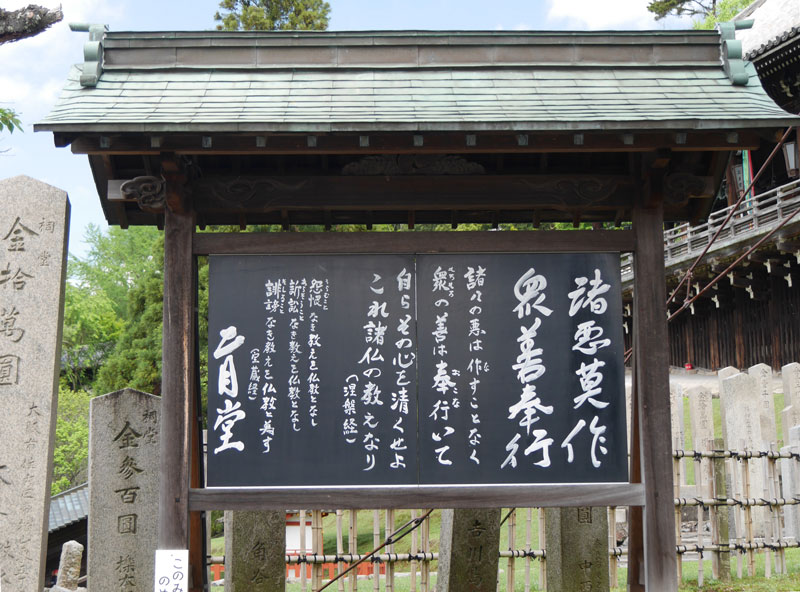 諸悪莫作
衆善奉行
諸々の悪は作すことなく
衆の善は奉行いて
自らその心を清くせよ
これ諸仏の教えなり
(涅槃経)
怨恨なき教えを仏教となし
訴訟なき教えを仏教となし
誹謗なき教えを仏教と為す
(宝蔵経)
二月堂
祠堂
金拾萬圓
祠堂
金参百圓
このみ